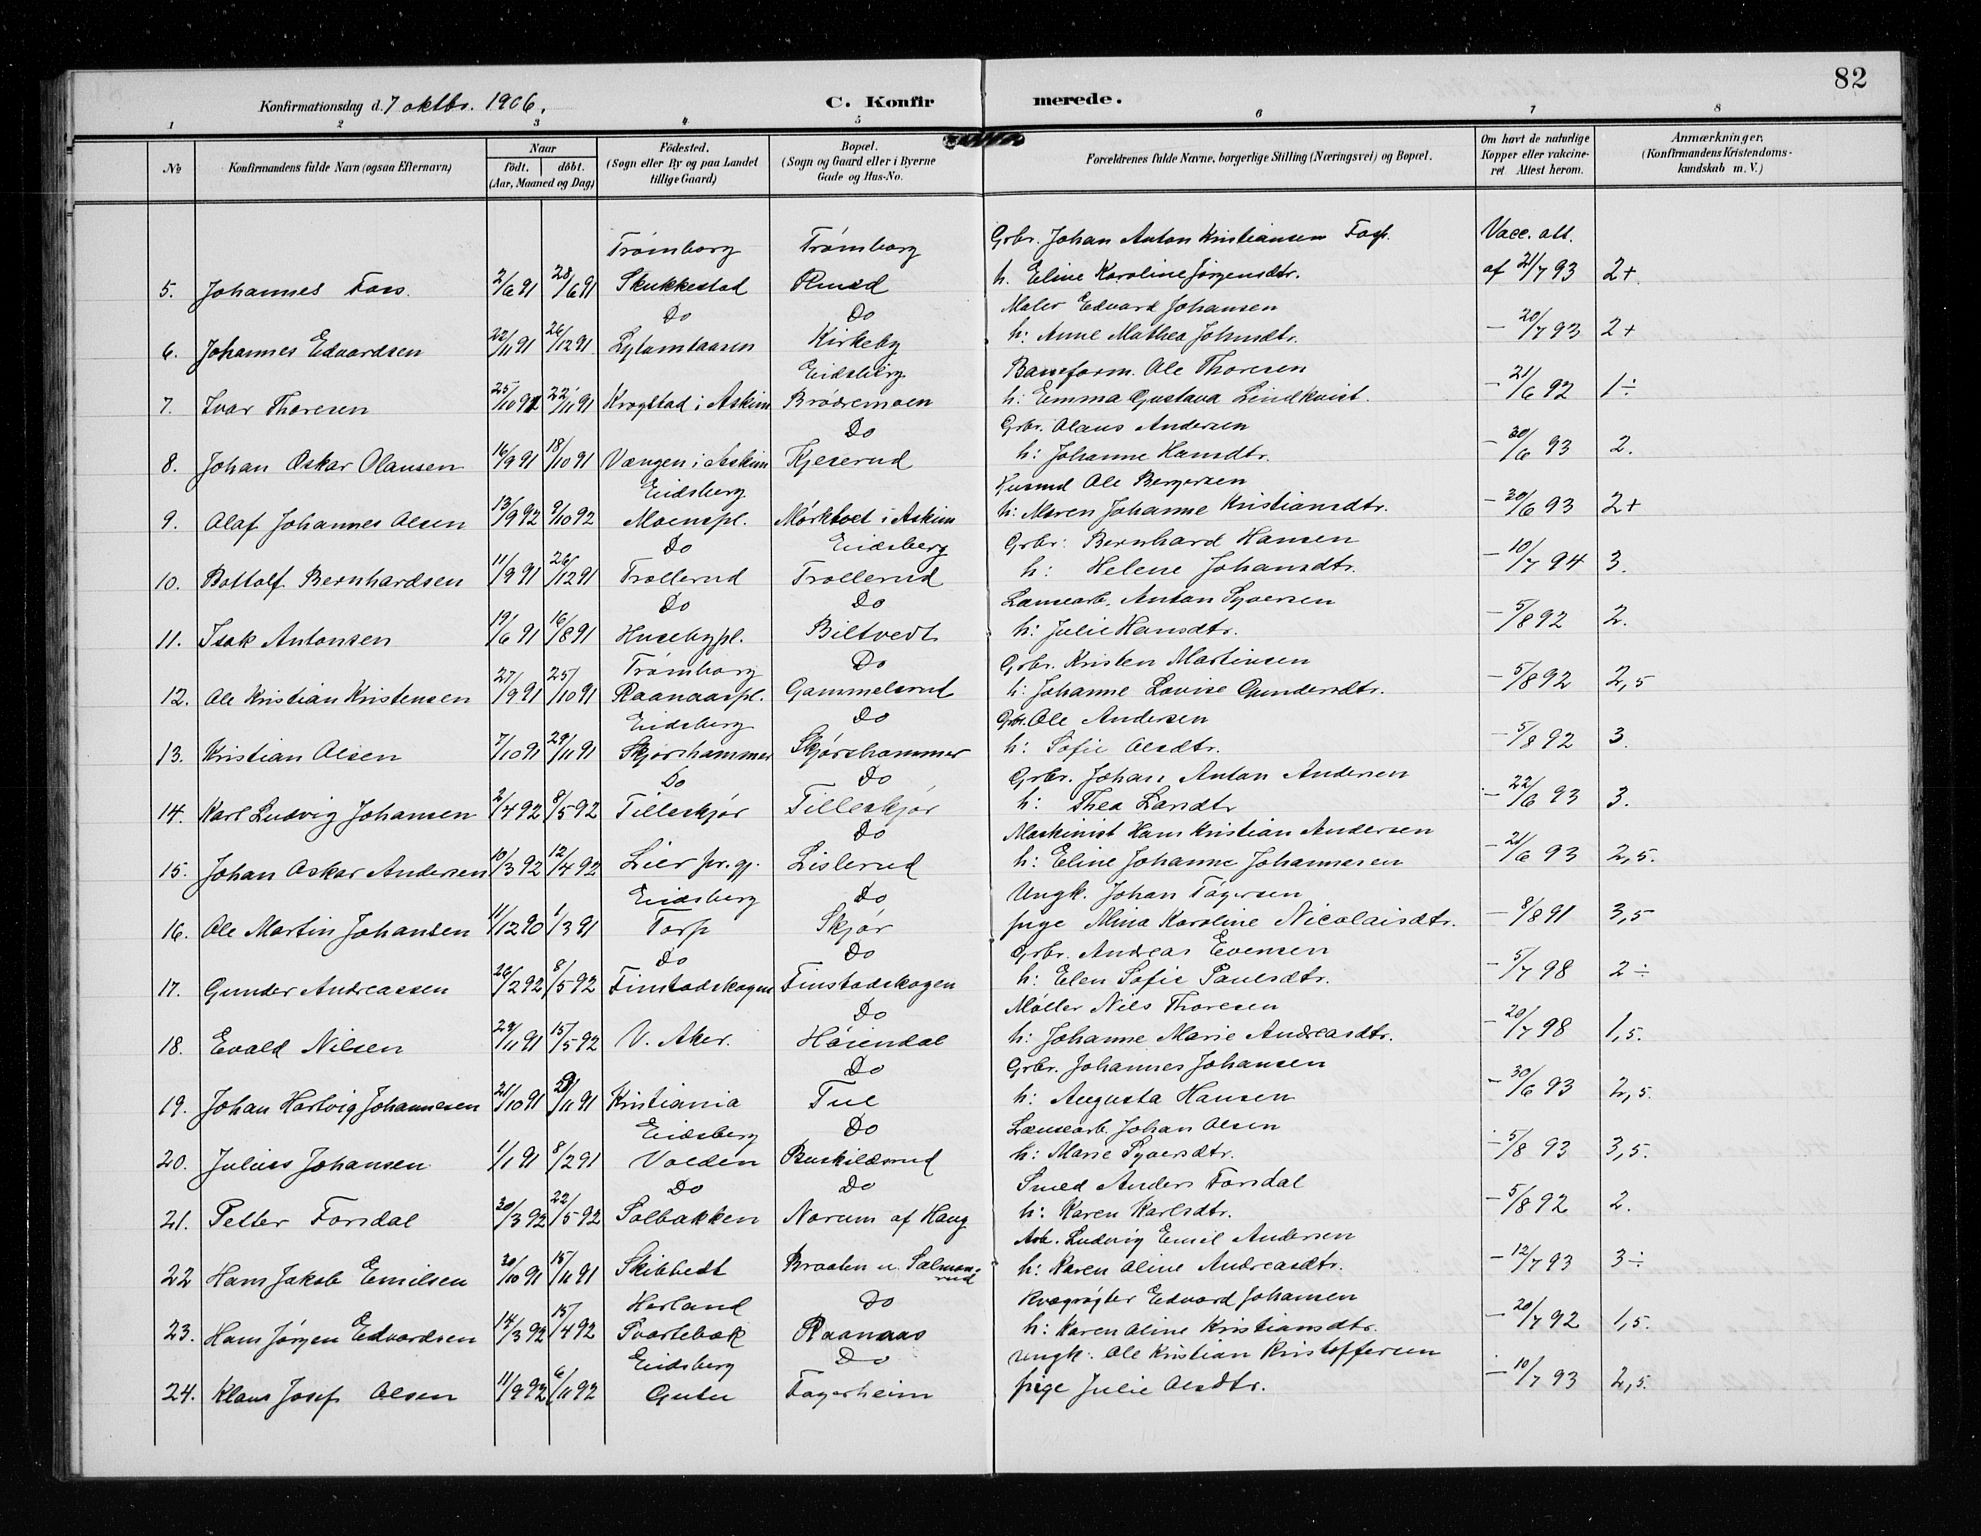 82
Konfirmationsdag d. 7 oktbr. 1906.
C. Konfirmerede.
1 2 3 4 5 6 7 8
No
Konfirmandens fulde Navn (ogsaa Efternavn)
Naar
födt. döbt.
(Aar, Maaned og Dag)
Födested.
(Sogn eller By og paa Landet
tillige Gaard)
Bopæl.
(Sogn og Gaard eller i Byerne
Gade og Hus-No.
Forældrenes fulde Navne, borgerlige Stilling (Næringsvei) og Bopæl.
Om havt de naturlige
Kopper eller vakcine-
ret Attest herom.
Anmærkninger,
(Konfirmandens Kristendoms-
kundskab m. V.)
Trømborg Trømborg Grbr. Johan Anton Kristiansen Vacc. att.
5. Johannes Foss 2/6 91 28/6 91 Skukkestad Ruud h. Eline Karoline Jørgensdtr. af 21/7 93 2+
Do Do Maler Edvard Johansen
6. Johannes Edvardsen 22/11 91 26/12 91 Kirkeby h: Anne Mathea Johnsdtr. - 20/7 93 2+
Eidsberg Ole Thoresen
7. Ivar Thoresen 25/10 91 22/11 91 Krogstad i Askim Brødremoen h: Emma Gustava Lindkvist. - 21/6 92 1÷
Do Grbr. Olaus Andersen
8. Johan Oskar Olausen 16/9 91 18/10 91 Vængen i Askim Kjeserud h: Johanne Hansdtr. - 30/6 93 2.
Eidsberg Husmd Ole Bergersen
9. Olaf Johannes Olsen 13/9 92 9/10 92 Moenspl. Mørktvet i Askim h: Maren Johanne Kristiansdtr. - 30/6 93 2+
Do Eidsberg Grbr: Bernhard Hansen
10. Bottolf Bernhardsen 11/9 91 26/12 91 Trollerud Trollerud h: Helene Johansdtr. - 10/7 94 3.
Do Do Anton Syversen
11. Isak Antonsen 19/6 91 16/8 91 Husebypl. Biltvedt h: Julie Hansdtr. - 5/8 92 2.
Trømborg Do Grbr. Kristen Martinsen
12. Ole Kristian Kristensen 27/9 91 25/10 91 Raanaaspl. Gammelsrud h: Johanne Lovise Gundersdtr. - 5/8 92 2,5
Eidsberg Do Grbr. Ole Andersen
13. Kristian Olsen 7/10 91 29/11 91 Skjørshammer Skjørshammer h: Sofie Olsdtr. - 5/8 92 3.
Do Do Grbr. Johan Anton Andersen
14. Karl Ludvig Johansen 2/4 92 8/5 92 Tilleskjør Tilleskjør h: Thea Larsdtr - 22/6 93 3.
Do Maskinist Hans Kristian Andersen
15. Johan Oskar Andersen 10/3 92 12/4 92 Lier pr.gj. Lislerud h: Eline Johanne Johannesen - 21/6 93 2,5.
Eidsberg Do Ungk. Johan Tøgersen
16. Ole Martin Johansen 11/12 90 1/3 91 Torp Skjør pige Mina Karoline Nicolaisdtr. - 8/8 91 3,5
Do Do Grbr. Andreas Evensen
17. Gunder Andreassen 26/2 92 8/5 92 Finstadskogen Finstadskogen h: Elen Sofie Paulsdtr. - 5/7 98 2÷
Do Møller Nils Thoresen
18. Evald Nilsen 29/11 91 15/5 92 V. Aker. Høiendal h: Johanne Marie Andreasdtr. - 20/7 98 1,5.
Do Grbr. Johannes Johansen
19. Johan Hartvig Johannesen 21/10 91 29/11 91 Kristiania Tue h: Augusta Hansen - 30/6 93 2,5.
Eidsberg Do Johan Olsen
20. Julius Johansen 1/1 91 8/2 91 Volden Buskildsrud h: Marie Syversdtr. - 5/8 93 3,5.
Do Do Smed Anders Forsdal
21. Petter Forsdal 30/3 92 22/5 92 Solbakken Norum af Haug h: Karen Karlsdtr. - 5/8 92 2.
Arb. Ludvig Emil Andersen
22 Hans Jakob Emilsen 20/10 91 15/11 91 Skibtvedt Braaten u. Salmonrud h: Karen Oline Andreasdtr. - 12/7 93 3÷
Herland Do Kvægrøgter Edvard Johansen
23. Hans Jørgen Edvardsen 14/3 92 15/4 92 Svartebæk Raanaas h: Karen Oline Kristiansdtr. - 20/7 92 1,5.
Eidsberg Do Ungk. Ole Kristian Kristoffersen
24. Klaus Josef Olsen 11/9 92 6/11 92 Guter Fagerheim pige Julie Olsdtr. - 10/7 93 2,5.